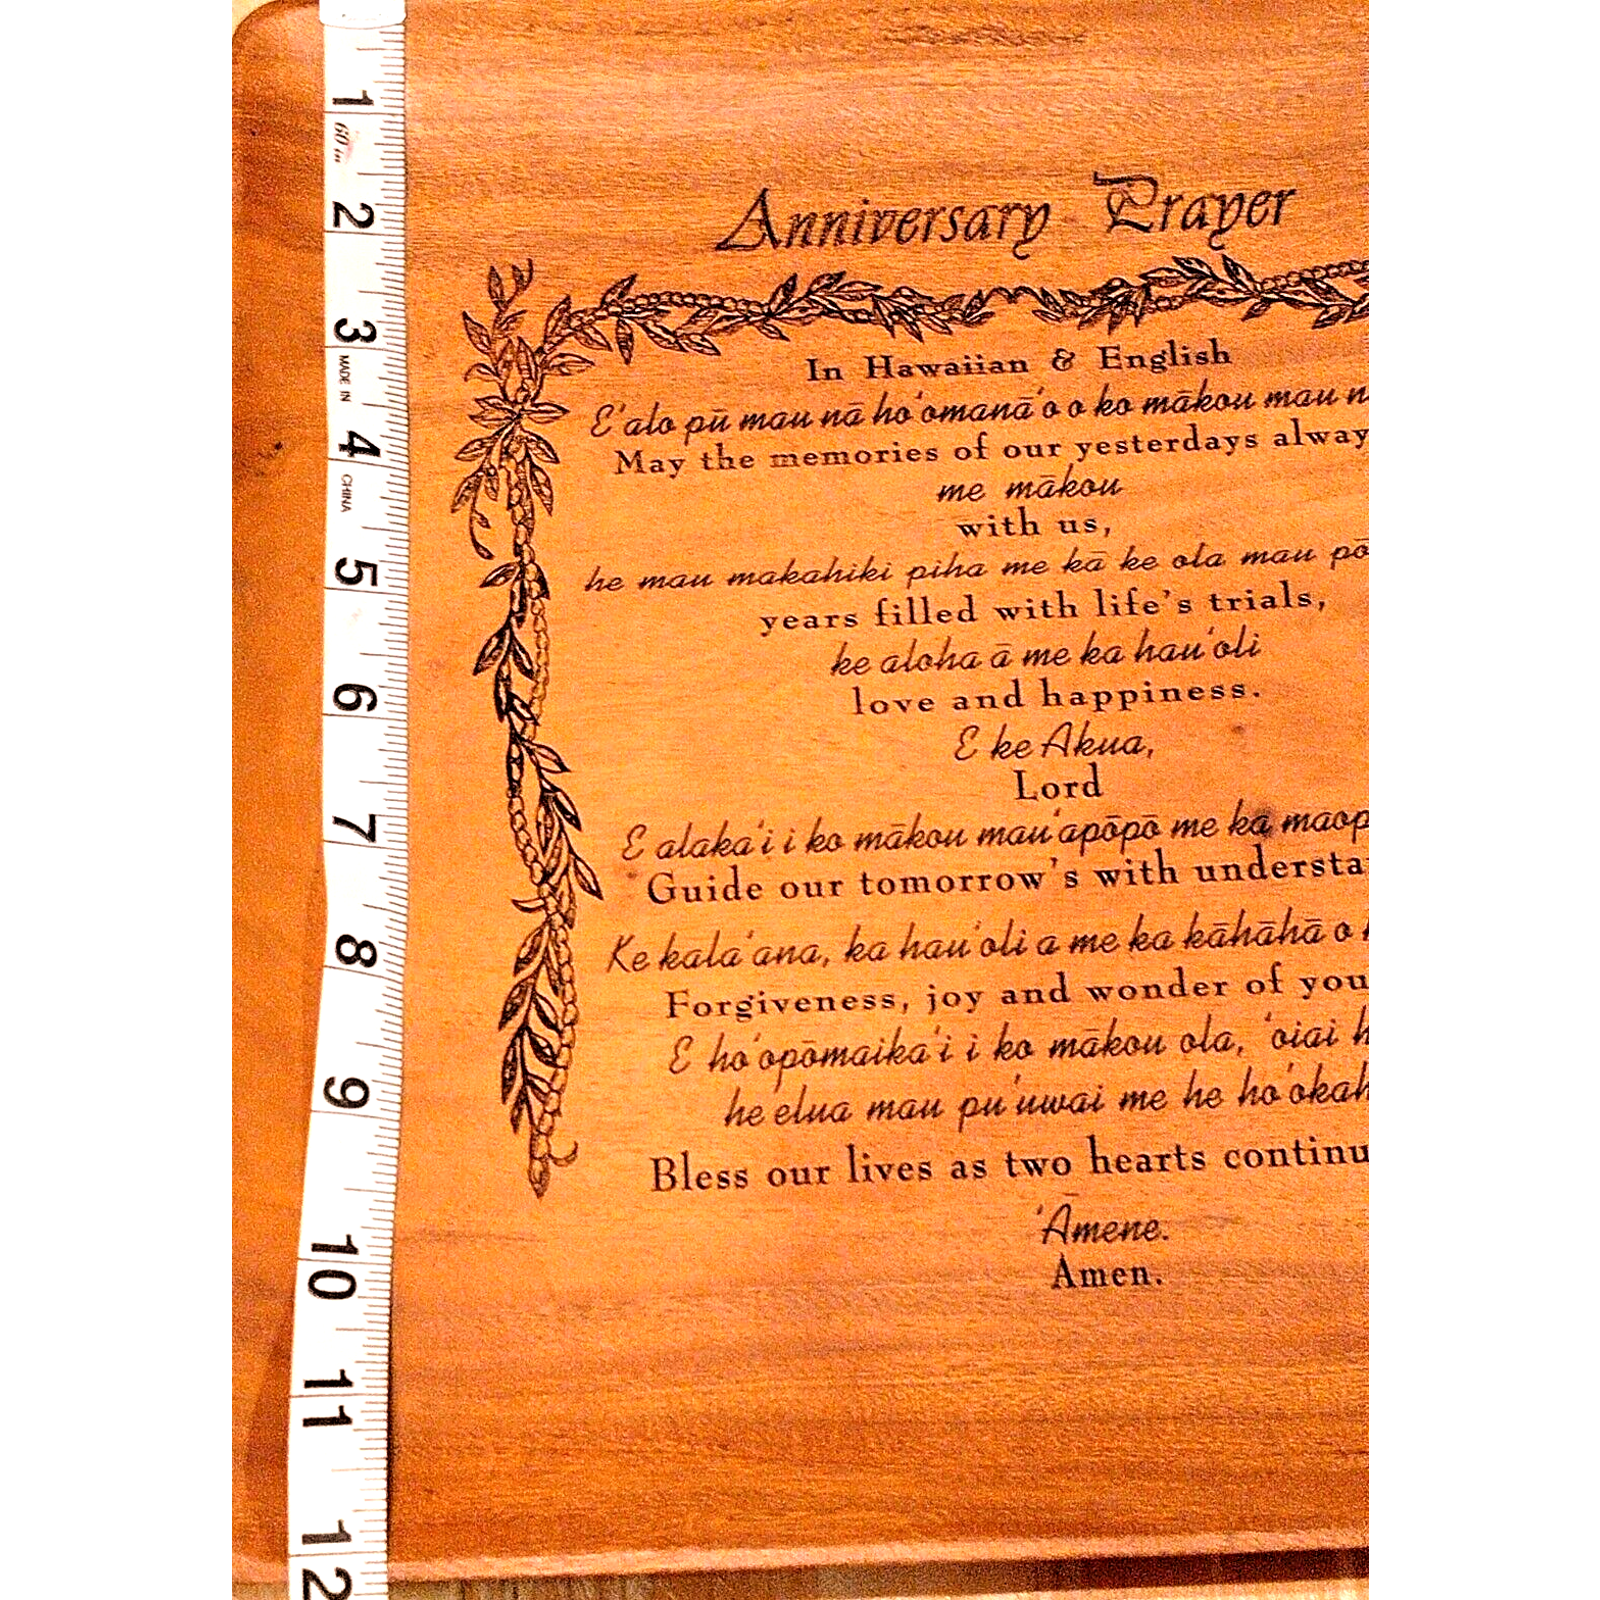 1
60 in
2
3
MADE IN
4
CHINA
5
6
7
8
9
10
11
12
Anniversary Prayer
In Hawaiian & English
E ʻalo pū mau nā hoʻomanāʻo o ko mākou mau n
May the memories of our yesterdays alway
me mākou
with us,
he mau makahiki piha me kā ke ola mau pō
years filled with life's trials,
ke aloha ā me ka hauʻoli
love and happiness.
E ke Akua,
Lord
E alakaʻi i ko mākou mau ʻapōpō me ka maop
Guide our tomorrow's with understa
Ke kalaʻana, ka hauʻoli a me ka kāhāhā o
Forgiveness, joy and wonder of you
E hoʻopōmaikaʻi i ko mākou ola, ʻoiai h
he elua mau puʻuwai me he hoʻokah
Bless our lives as two hearts continu
ʻĀmene.
Amen.